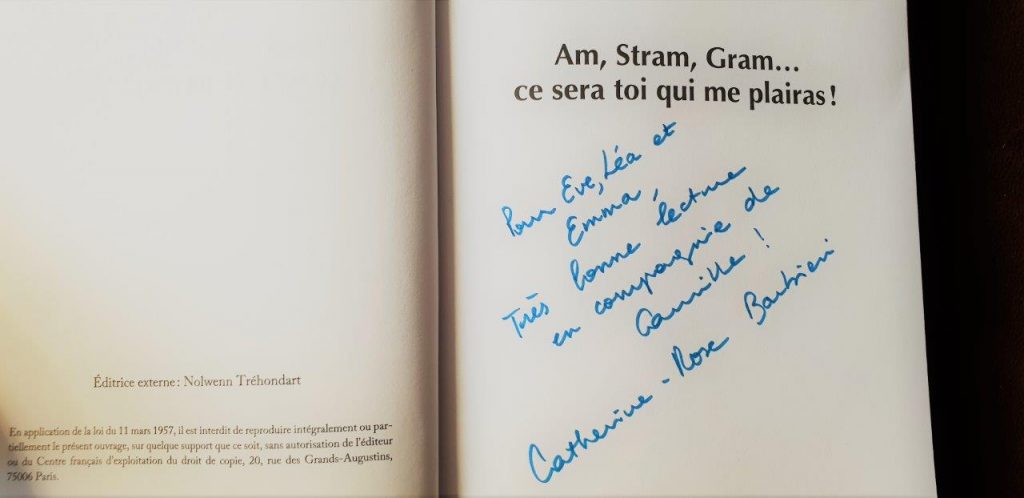 Éditrice externe : Nolwenn Tréhondart
En application de la loi du 11 mars 1957, il est interdit de reproduire intégralement ou par-
tiellement le présent ouvrage, sur quelque support que ce soit, sans autorisation de l'éditeur
ou du Centre français d'exploitation du droit de copie, 20, rue des Grands-Augustins,
75006 Paris.
Am, Stram, Gram...
ce sera toi qui me plairas !
Pour Eve, Léa et
Emma,
Très bonne lecture
en compagnie de
Camille !
Catherine-Rose Barbieri